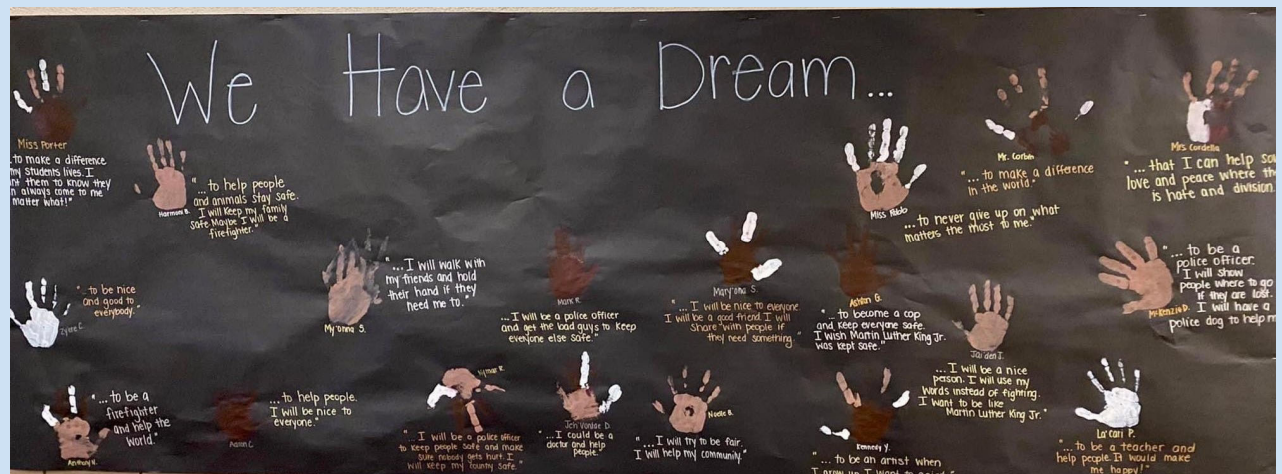 We Have a Dream...
Miss Porter
..to make a difference
my students lives. I
nt them to know they
n always come to me
matter what!"
Harmoni B.
"...to help people
and animals stay safe.
I will keep my family
safe. Maybe I will be a
firefighter."
Miss Pablo
...to never give up on what
matters the most to me."
Mr. Corbin
"...to make a difference
in the world."
Mrs. Cordella
"...that I can help so
love and peace where th
is hate and division.
Zyire C.
"...to be nice
and good to
everybody."
My'onna S.
"...I will walk with
my friends and hold
their hand if they
need me to."
Mark R.
...I will be a police officer
and get the bad guys to keep
everyone else safe."
Mary'ona S.
"...I will be nice to everyone
I will be a good friend. I will
share with people if
they need something."
Ashton G.
"...to become a cop
and keep everyone safe.
I wish Martin Luther King Jr.
was kept safe."
Jai'den J.
...I will be a nice
person. I will use my
words instead of fighting.
I want to be like
Martin Luther King Jr."
McKenzie D.
"...to be a
police officer.
I will show
people where to go
if they are lost.
I will have a
police dog to help m
Anthony V.
"...to be a
firefighter
and help the
world."
Aaron C.
...to help people.
I will be nice to
everyone."
Kymar R.
"...I will be a police officer
to keep people safe and make
sure nobody gets hurt. I
will keep my county safe."
"...I could be a
doctor and help
people."
Noelle B.
"...I will try to be fair.
I will help my community."
Kennedy Y.
"...to be an artist when
La'cari P.
"...to be a teacher and
help people. It would make
me happy!"